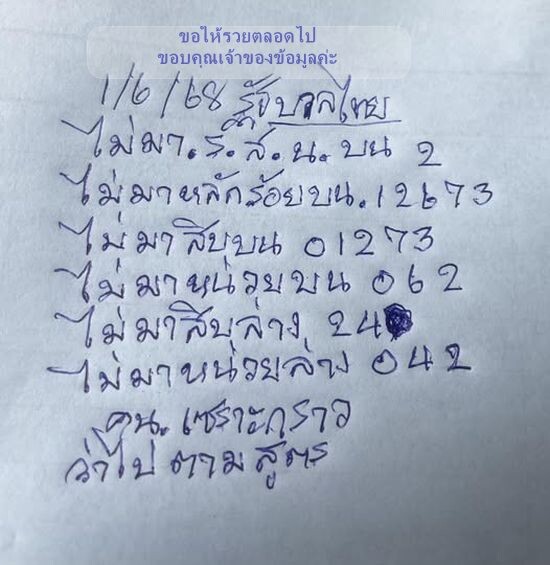 ขอให้รวยตลอดไป
ขอบคุณเจ้าของข้อมูลค่ะ
1/6/68 รัฐบาลไทย
ไม่มา.ร.ส.น.บน 2
ไม่มาหลักร้อยบน.12673
ไม่มาสิบบน 01273
ไม่มาหน่วยบน 062
ไม่มาสิบล่าง 24
ไม่มาหน่วยล่าง 042
คน.เซราะกราว
ว่าไปตามสูตร